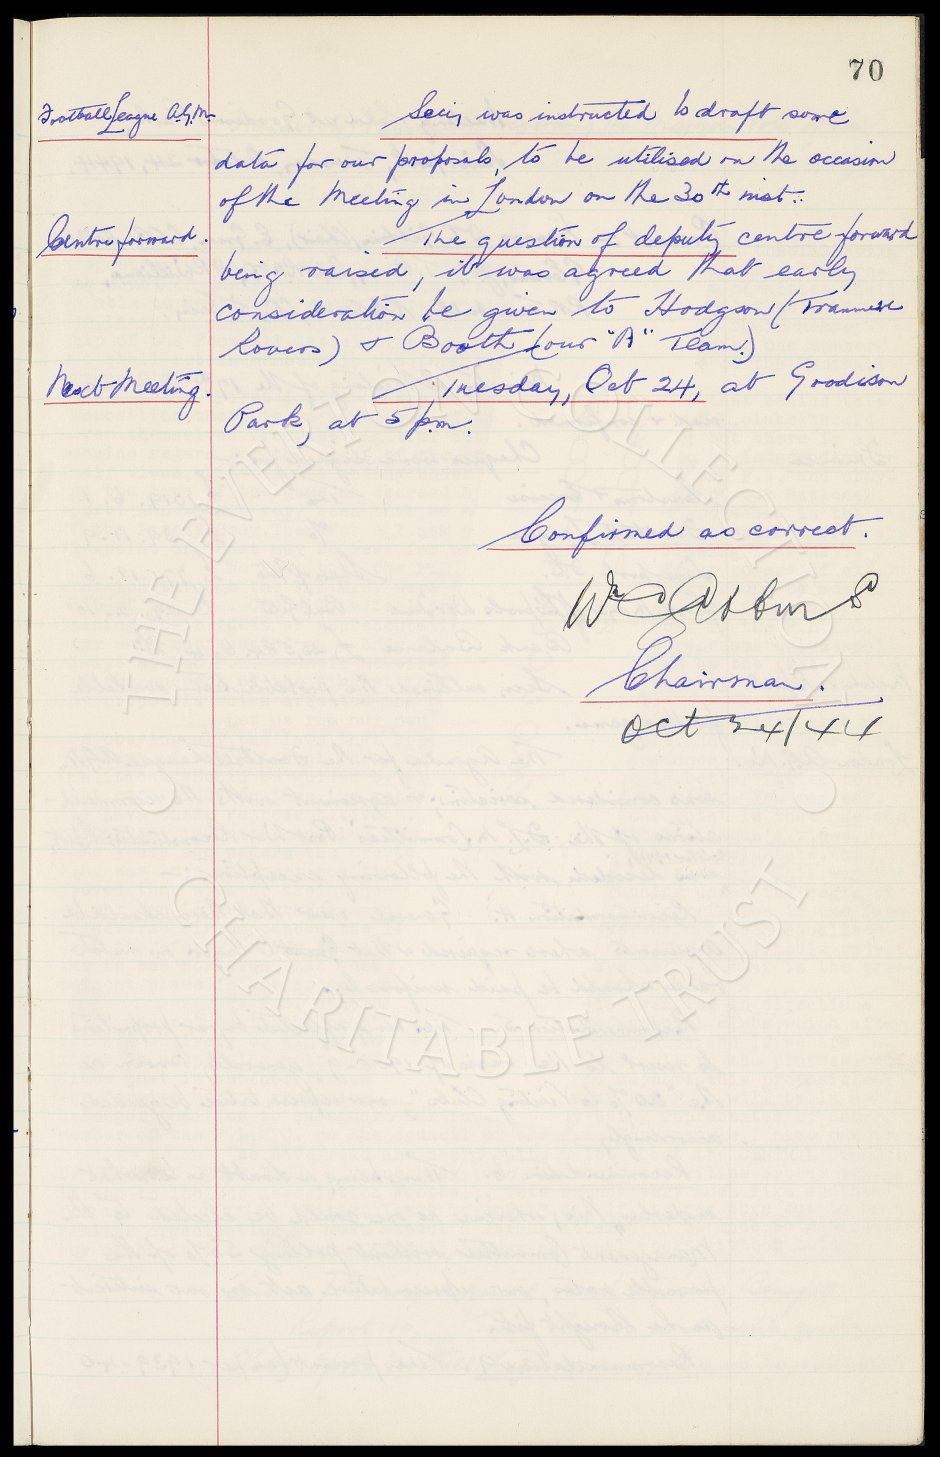 70
Football League A.G.M. Secy, was instructed to draft some
data for our proposals, to be utilised on the occasion
of the Meeting in London on the 30th inst..
Centre forward. The question of deputy centre forward
being raised, it was agreed that early
consideration be given to Hodgson (Tranmere
Rovers) & Booth (our "A" Team.)
Next Meeting. Tuesday, Oct 24, at Goodison
Park, at 5 p.m.
Confirmed as correct.
Chairman.
Oct 24/44
THE EVERTON COLLECTION
CHARITABLE TRUST